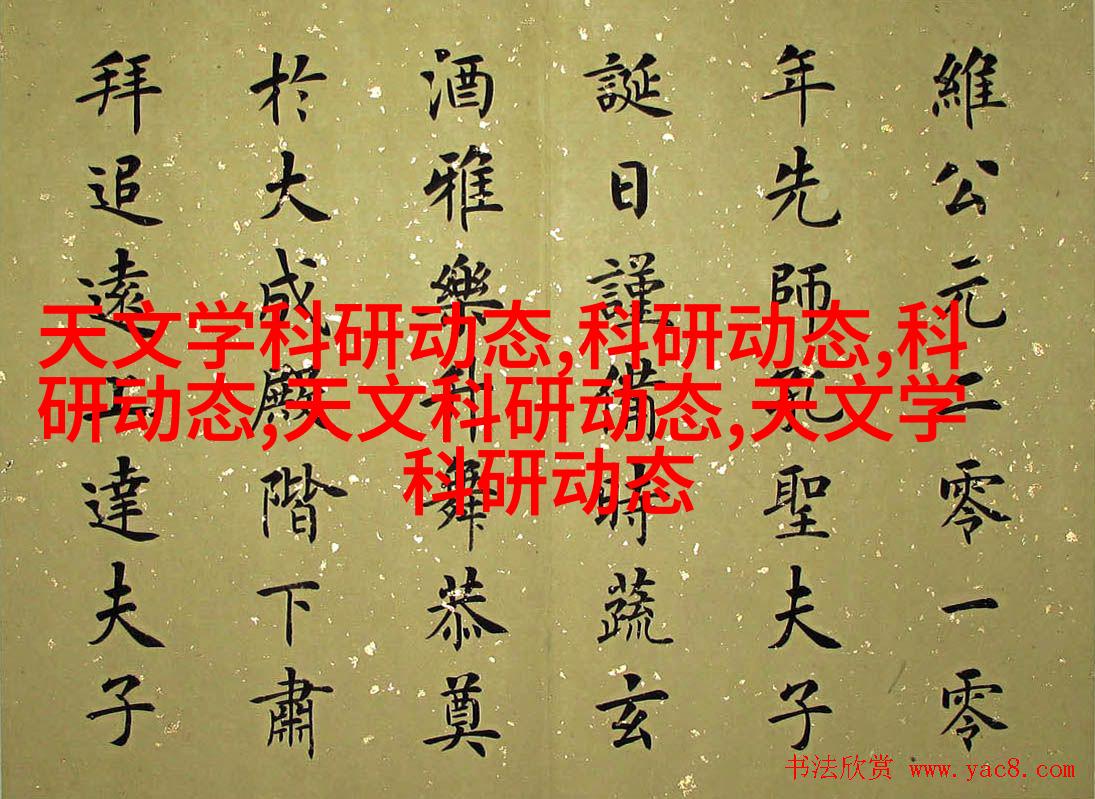 維公元二零一零
年先師孔聖夫子
誕日謹備時蔬玄
酒雅樂舞恭奠
於大成殿階下肅
拜追遠上達夫子
天文学科研动态,科研动态,科
研动态,天文科研动态,天文学
科研动态
书法欣赏 www.yac8.com